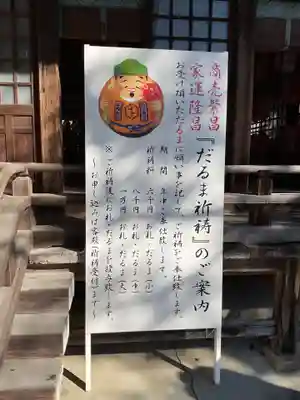 商売繁昌
家運隆昌
『だるま祈祷』のご案内
お受け頂いただるまに願い事を託して、ご祈祷をご奉仕致します。
期間 年中ご奉仕致します。
祈祷料 六千円 お札・だるま(小)
八千円 お札・だるま(中)
一万円 お札・だるま(大)
※ご祈祷後にお札、だるまを授与致します。
〜お申し込みは客殿(祈祷受付)まで〜